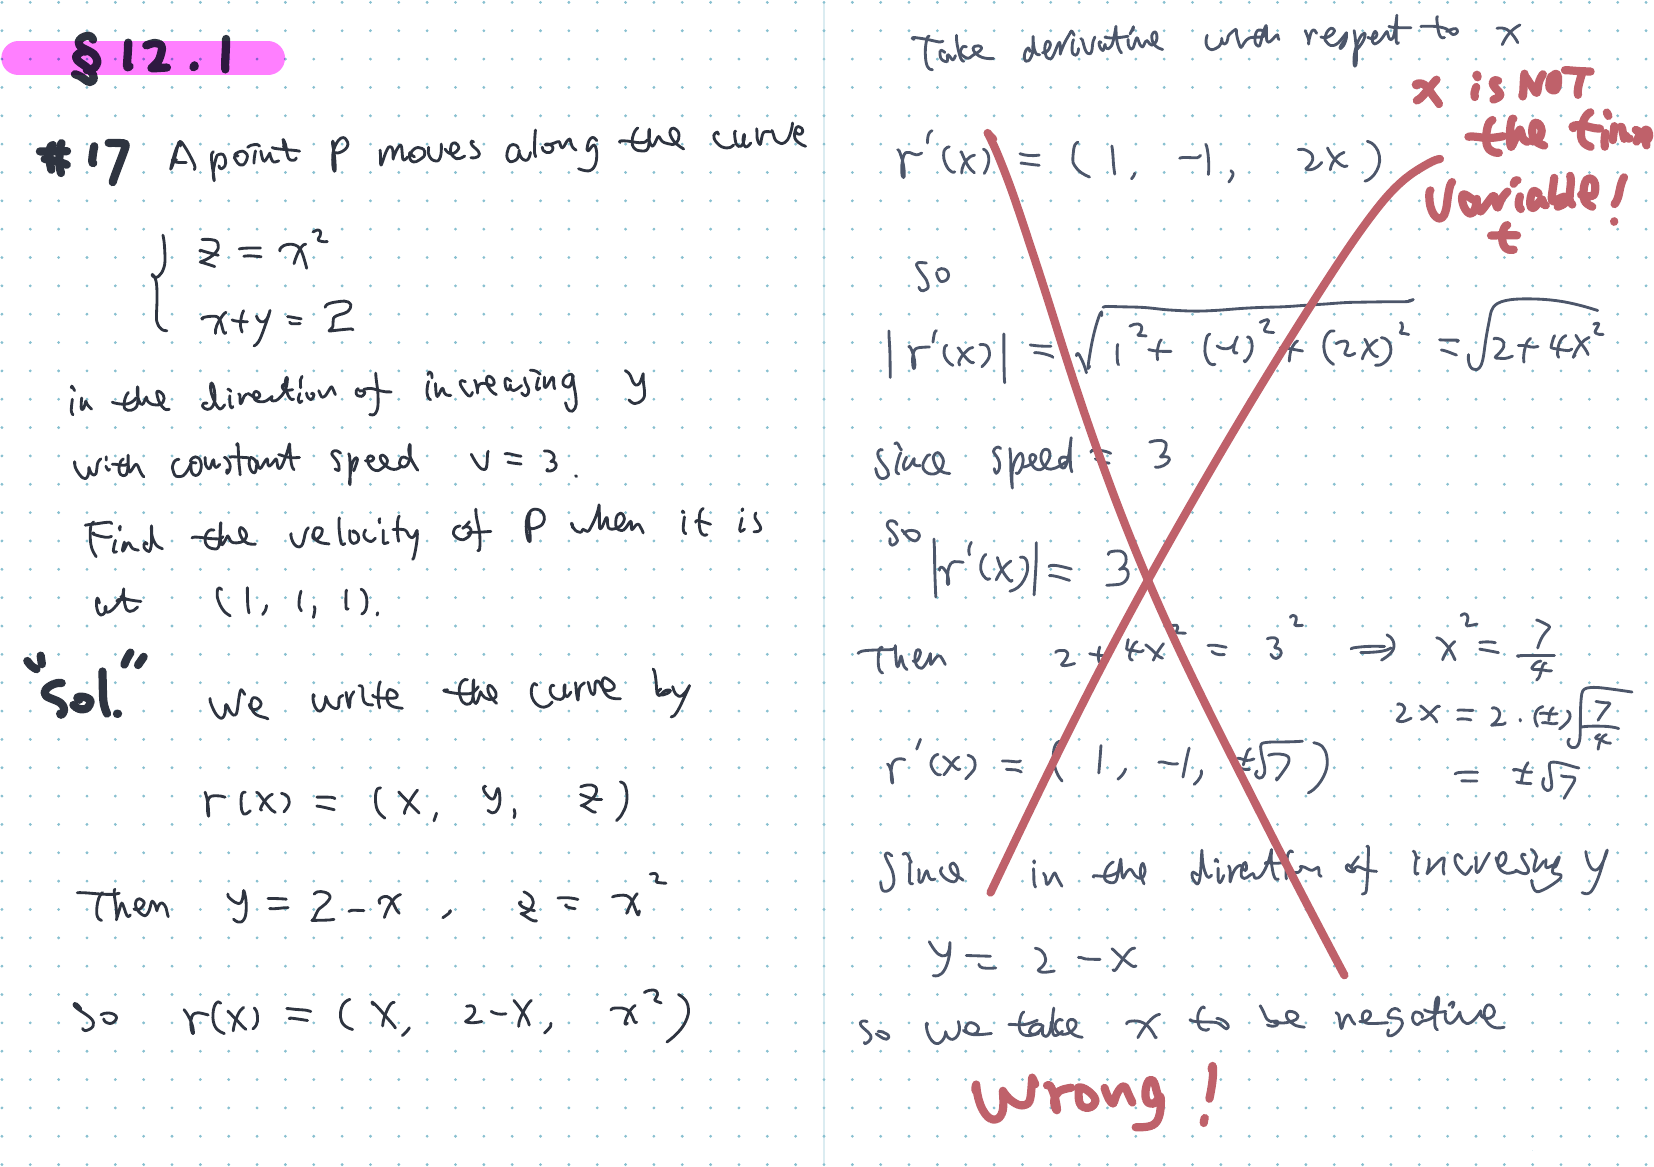 § 12.1
#17 A point P moves along the curve
z = x²
x+y = 2
in the direction of increasing y
with constant speed v = 3.
Find the velocity of P when it is
at (1, 1, 1).
"Sol." We write the curve by
r(x) = (x, y, z)
Then y = 2-x , z = x²
So r(x) = (x, 2-x, x²)
Take derivative with respect to x
x is NOT
the time
variable!
t
r'(x) = (1, -1, 2x)
so
|r'(x)| = √(1² + (-1)² + (2x)²) = √(2+4x²)
Since speed = 3
so
|r'(x)| = 3
Then 2 + 4x² = 3² ⟹ x² = 7/4
2x = 2·(±)√(7/4)
= ±√7
r'(x) = (1, -1, ±√7)
Since in the direction of incresing y
y = 2 - x
so we take x to be negative
Wrong!